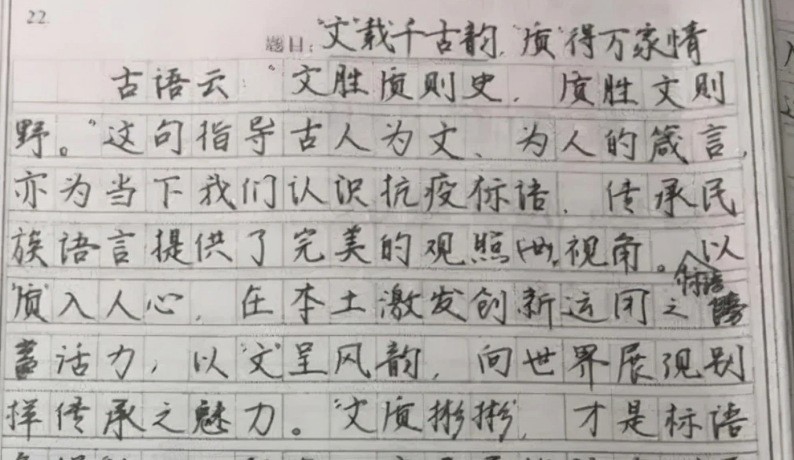 22
题目：“文”载千古韵，“质”得万家情
古语云“文胜质则史，质胜文则
野。”这句指导古人为文、为人的箴言，
亦为当下我们认识抗疫标语、传承民
族语言提供了完美的观照 视角。以
标语
“质”入人心，在本土激发创新运用之
活力，以“文”呈风韵，向世界展现别
样传承之魅力。“文质彬彬”，才是标语